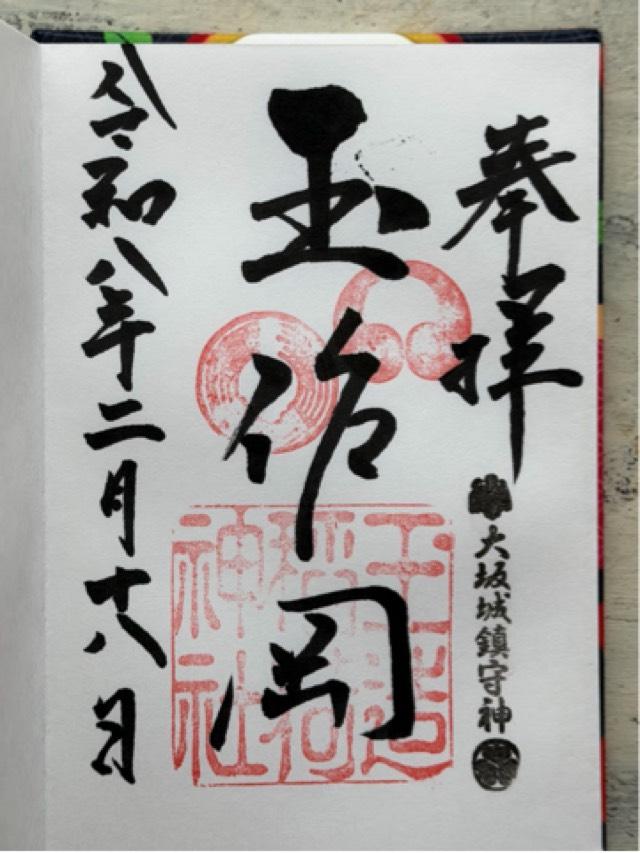 奉拝
大坂城鎮守神
玉作岡
玉造稲荷神社
令和八年二月十八日